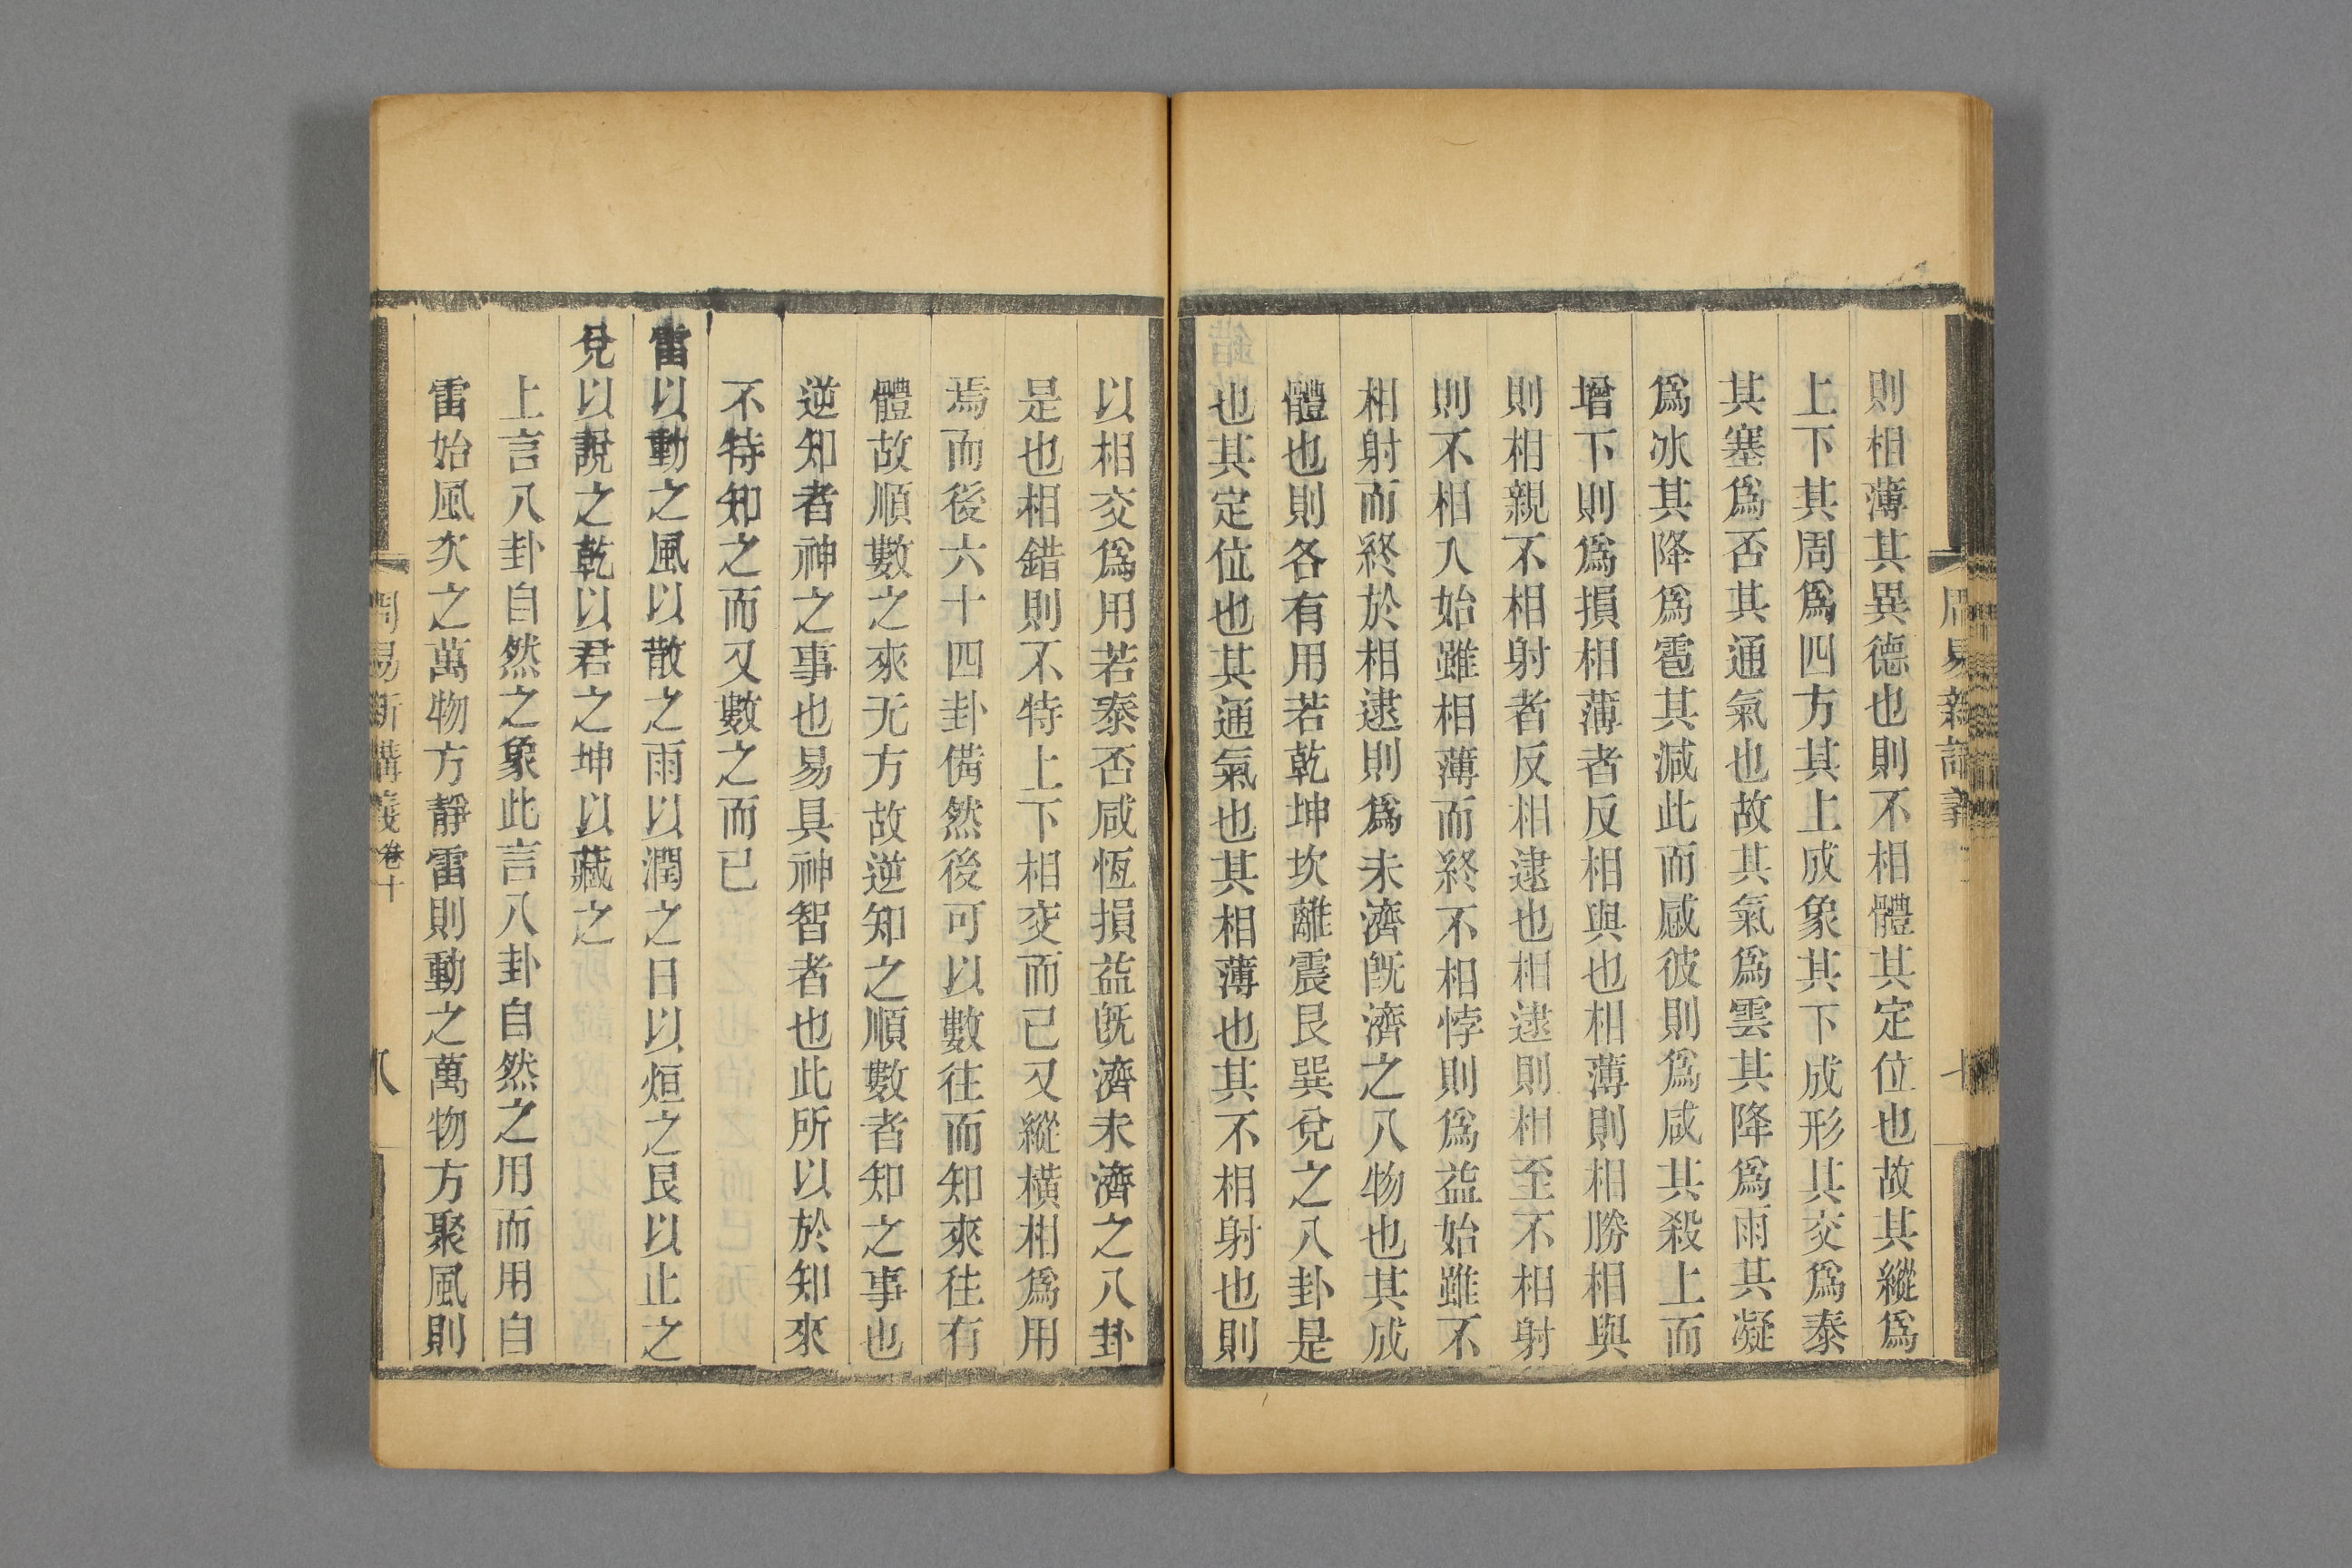 則相薄其異德也則不相體其定位也故其縱爲
上下其周爲四方其上成象其下成形其交爲泰
其塞爲否其通氣也故其氣爲雲其降爲雨其凝
爲冰其降爲雹其減此而感彼則爲咸其殺上而
增下則爲損相薄者反相與也相薄則相勝相與
則相親不相射者反相逮也相逮則相至不相射
則不相入始雖相薄而終不相悖則爲益始雖不
相射而終於相逮則爲未濟旣濟之八物也其成
體也則各有用若乾坤坎離震艮巽兌之八卦是
也其定位也其通氣也其相薄也其不相射也則
以相交爲用若泰否咸恆損益旣濟未濟之八卦
是也相錯則不特上下相交而已又縱橫相爲用
焉而後六十四卦備然後可以數往而知來往有
體故順數之來无方故逆知之順數者知之事也
逆知者神之事也易具神智者也此所以於知來
不特知之而又數之而已
雷以動之風以散之雨以潤之日以烜之艮以止之
兌以說之乾以君之坤以藏之
上言八卦自然之象此言八卦自然之用而用自
雷始風次之萬物方靜雷則動之萬物方聚風則
周易新講義 卷十
八